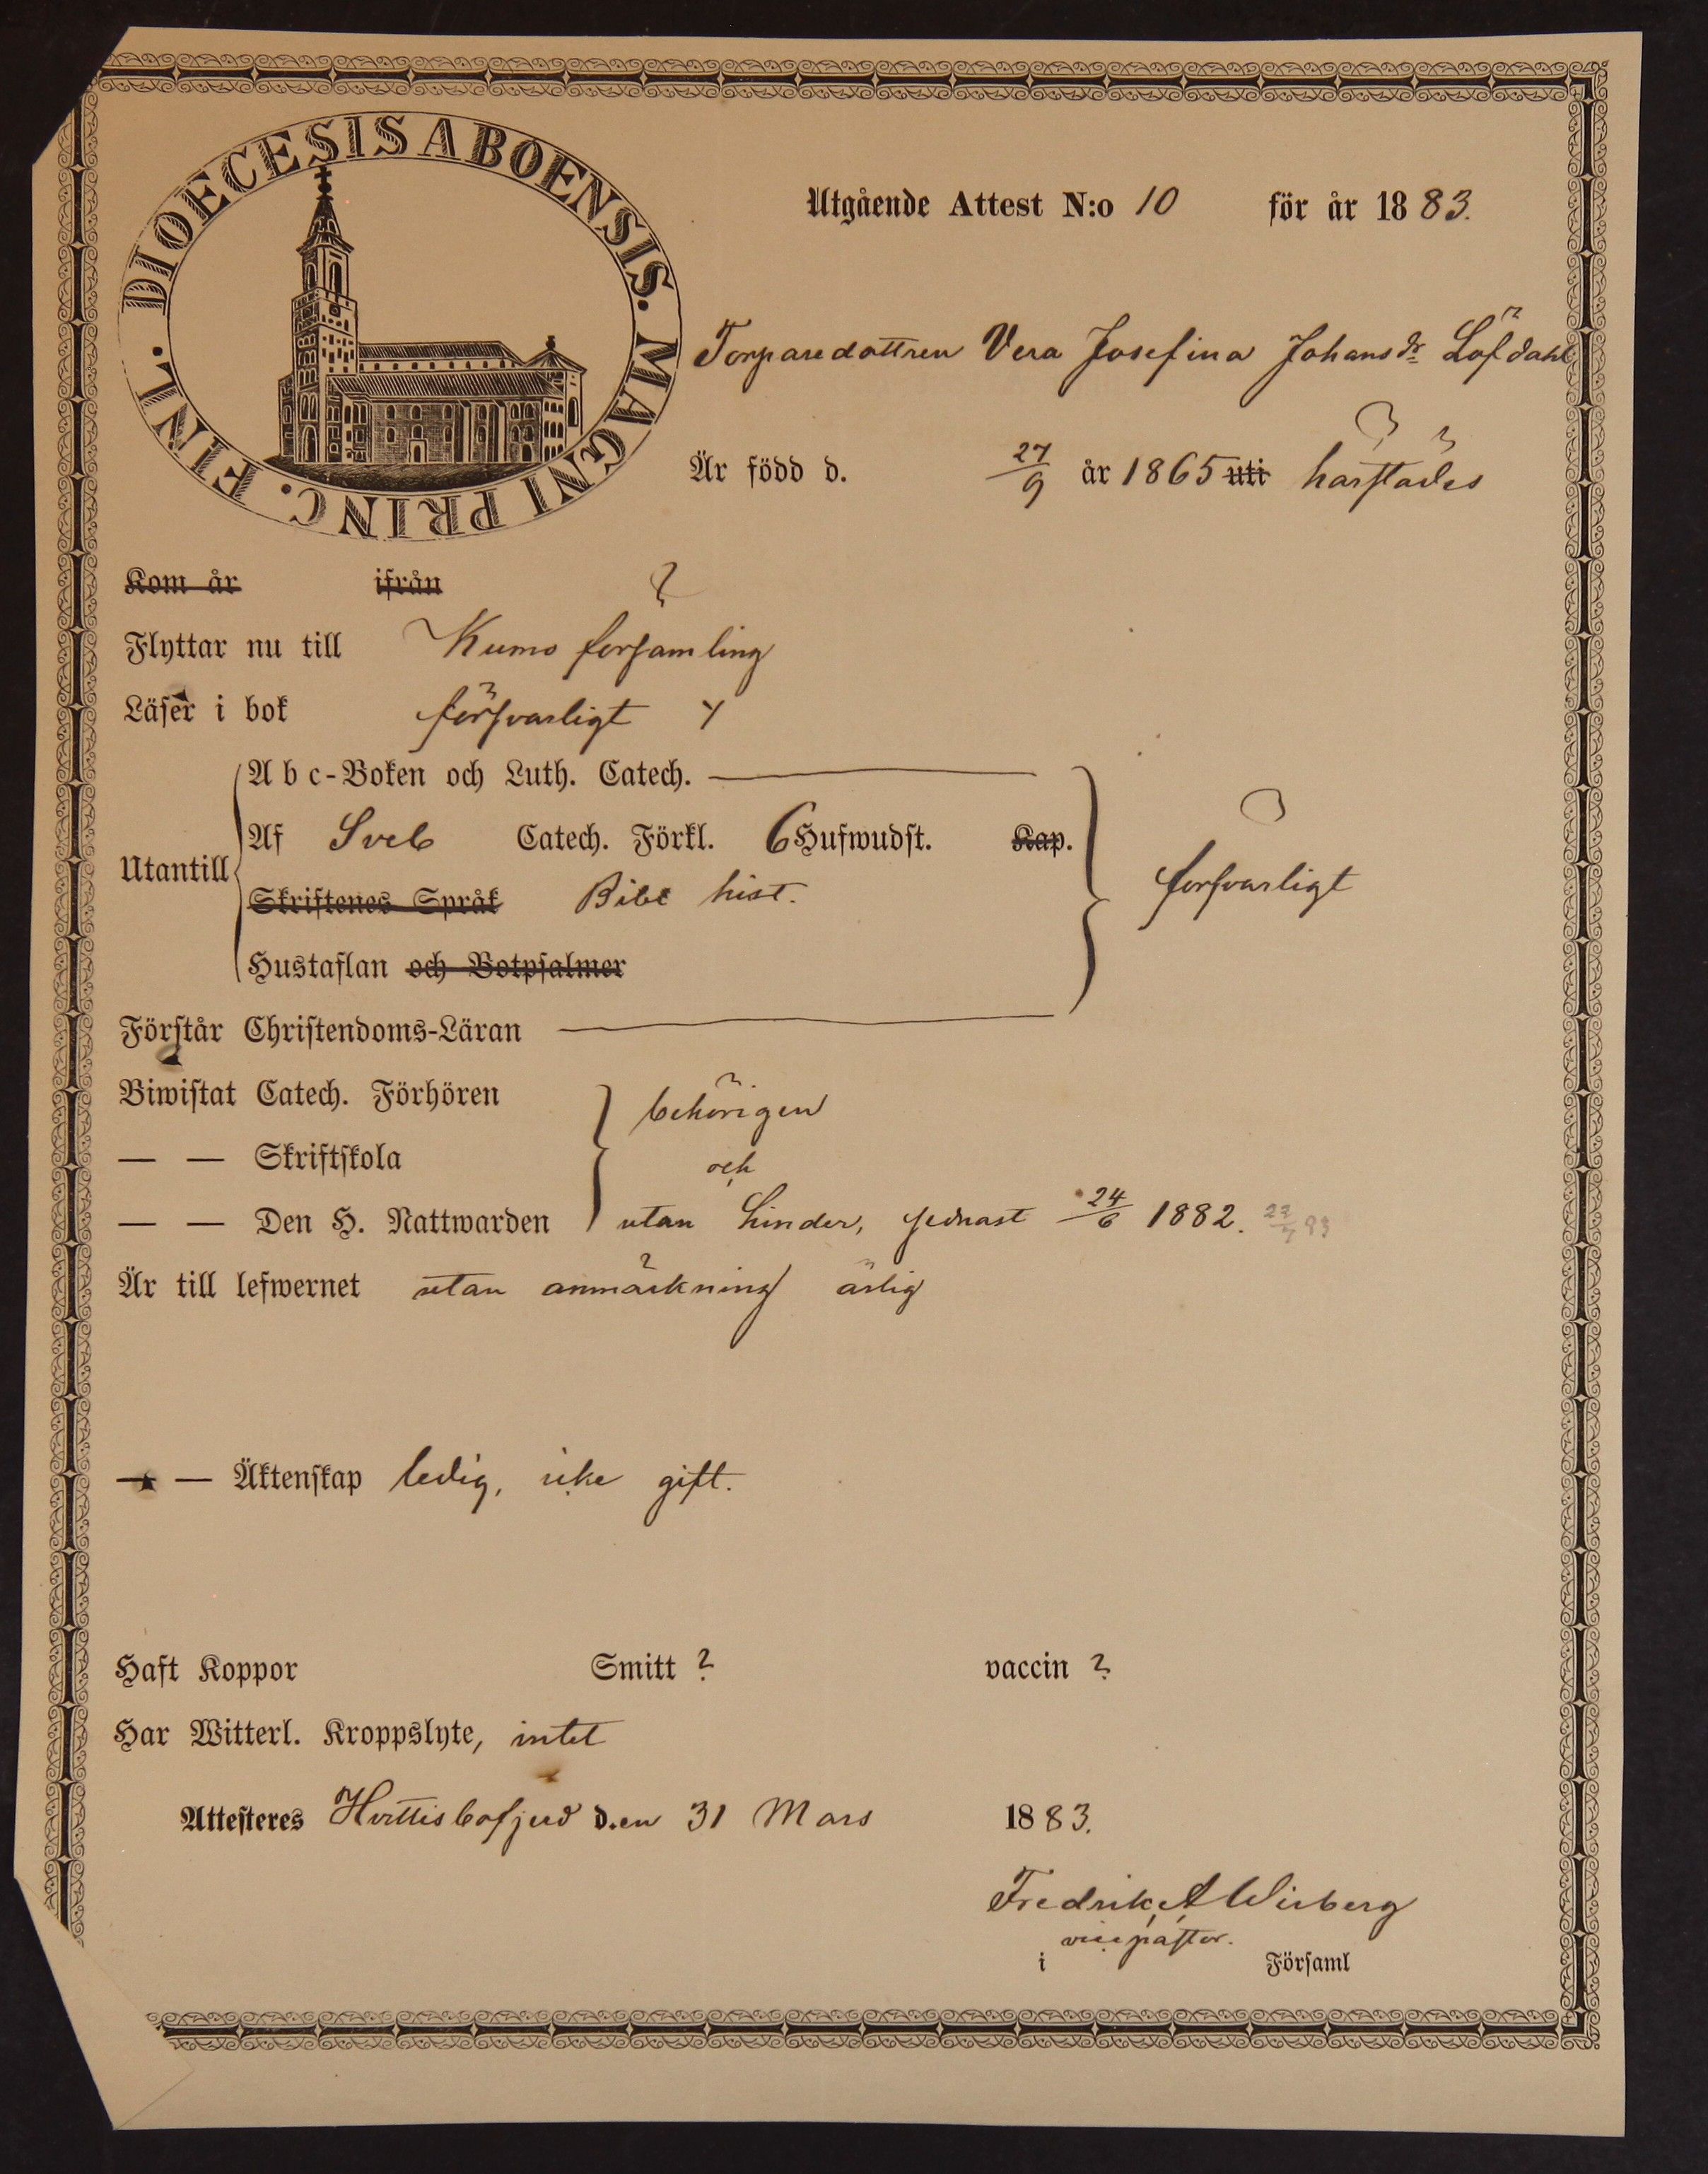 DIOECESIS ABOENSIS. MAGNI PRINC. FINL.
Utgående Attest N:o 10 för år 1883.
Torparedottren Vera Josefina Johansdr Löfdahl
Är född d. 27/9 år 1865 uti härstädes
Kom år ifrån
Flyttar nu till Kumo församling
Läser i bok försvarligt
Abc-Boken och Luth. Catech.
Utantill
Af Sveb Catech. Förkl. 6 Hufwudst. Kap.
försvarligt
Skriftenes Språk Bibl hist.
Hustaflan och Botpsalmer
Förstår Christendoms-Läran
Biwistat Catech. Förhören behörigen
— — Skriftskola och
— — Den H. Nattwarden utan hinder, sednast 24/6 1882.
Är till lefwernet utan anmärkning ärlig
— — Äktenskap ledig, icke gift.
Haft Koppor Smitt ? vaccin ?
Har Witterl. Kroppslyte, intet
Attesteres Hvittisbofjerd d.en 31 Mars 1883.
Fredrik A Wirberg
vice pastor.
i Församl